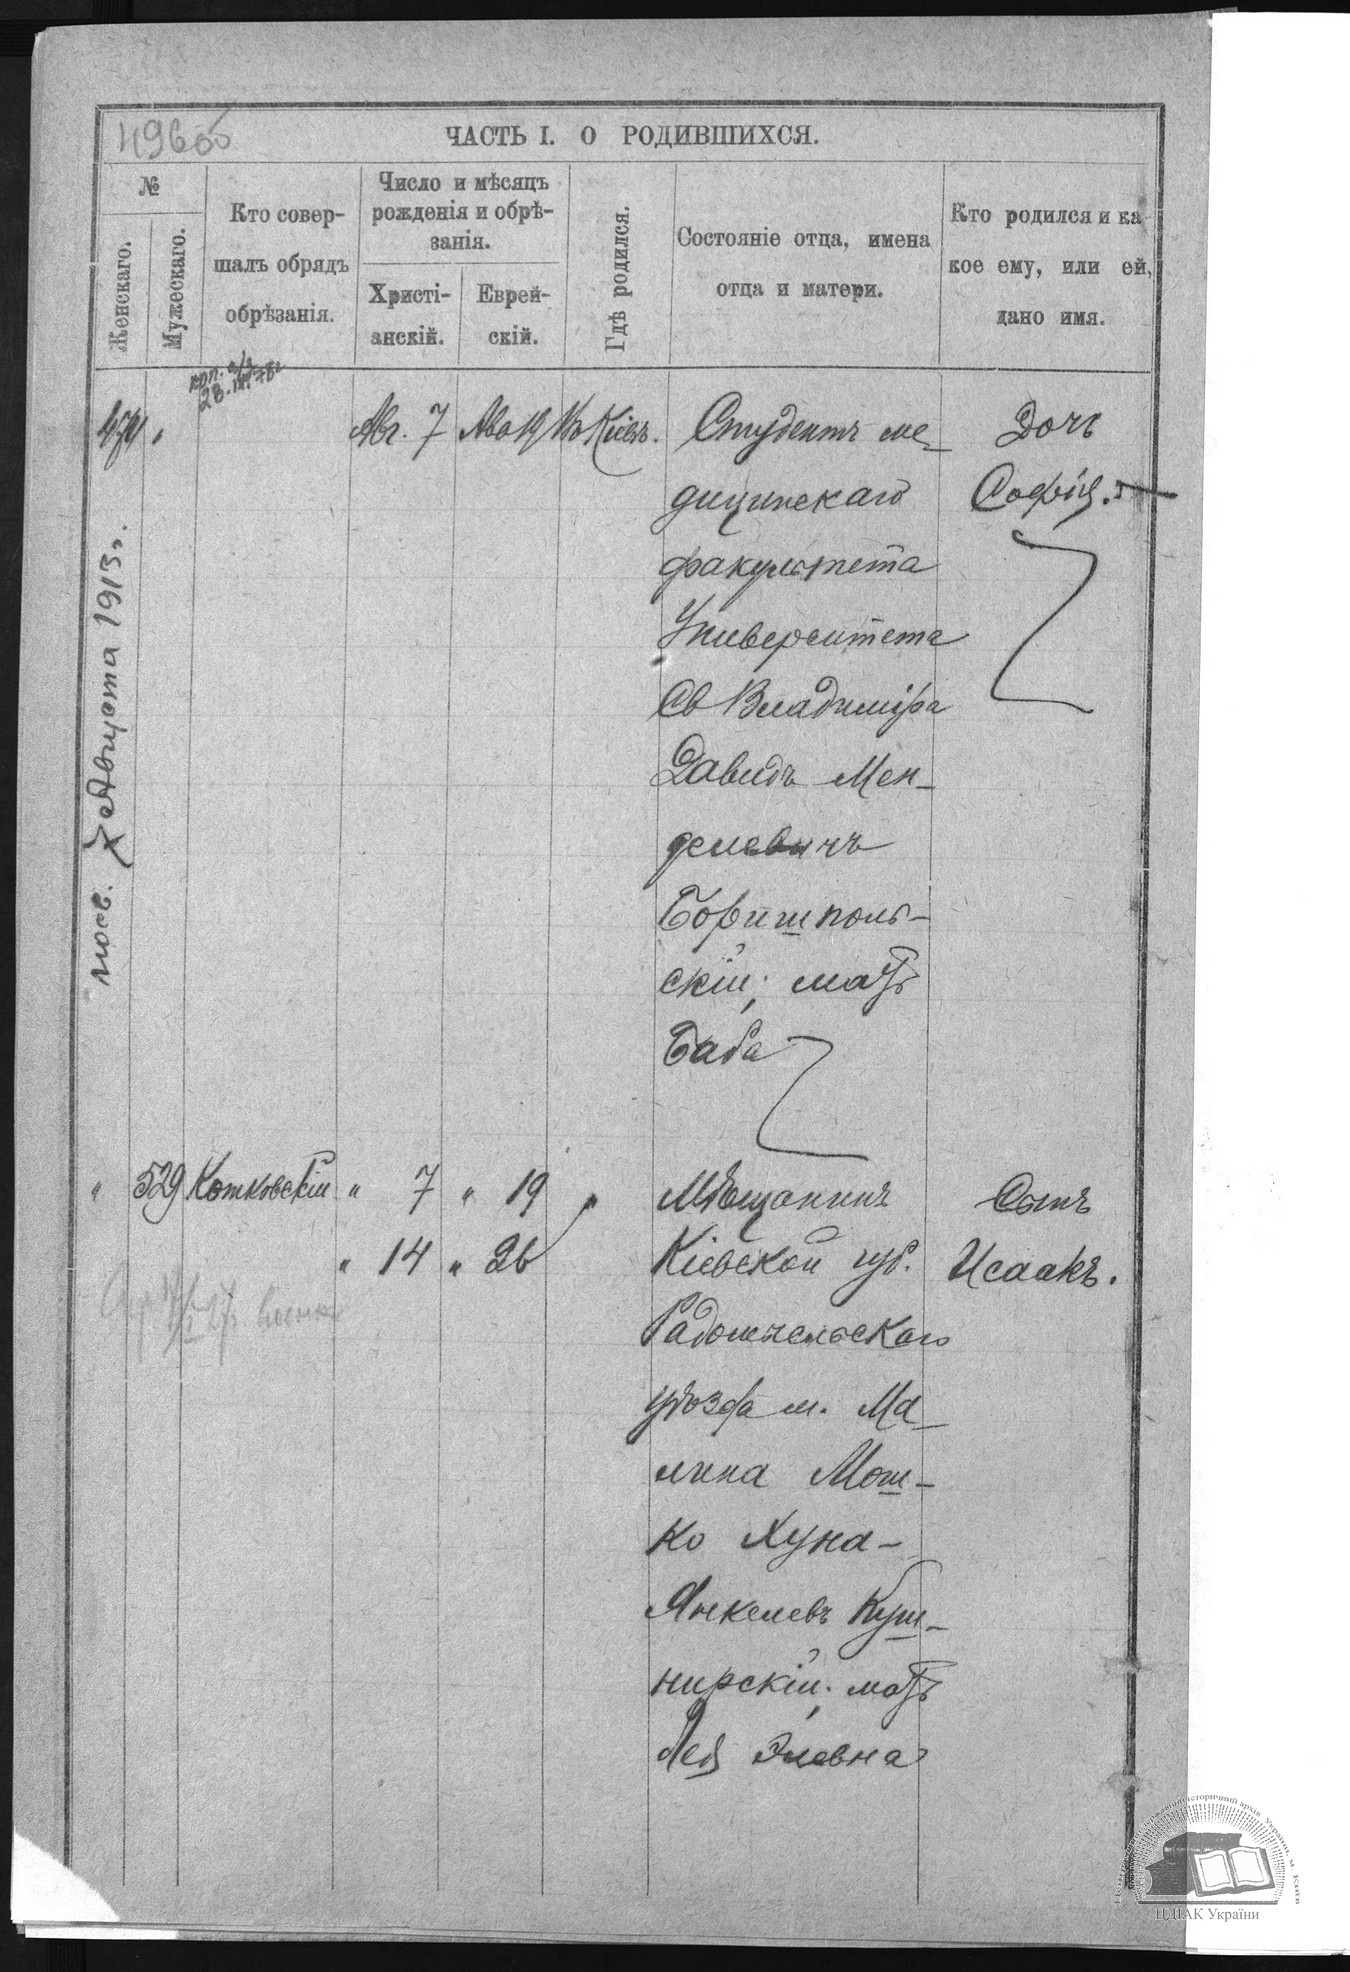 ЧАСТЬ I. О РОДИВШИХСЯ.
№
Женскаго.
Мужескаго.
Кто совер-
шалъ обрядъ
обрѣзанія.
Число и мѣсяцъ
рожденія и обрѣ-
занія.
Христі-
анскій.
Еврей-
скій.
Гдѣ родился.
Состояніе отца, имена
отца и матери.
Кто родился и ка-
кое ему, или ей,
дано имя.
474 "
Авг. 7 Ава 19 Въ Кіевѣ.
Студентъ ме-
дицинскаго
факультета
Университета
Св Владиміра
Давидъ Мен-
делевичъ
Боришполь-
скій; мать
Баба
Дочь
Софія.
Августа 1913г.
" 529 Котковскій " 7 " 19 "
" 14 " 26
Мѣщанинъ
Кіевской губ.
Радомысльскаго
уѣзда м. Ма-
лина Мош-
ко Хуна-
Янкелевъ Куш-
нирскій; мать
Лея Элевна
Сынъ
Исаакъ.
ЦДІАК України